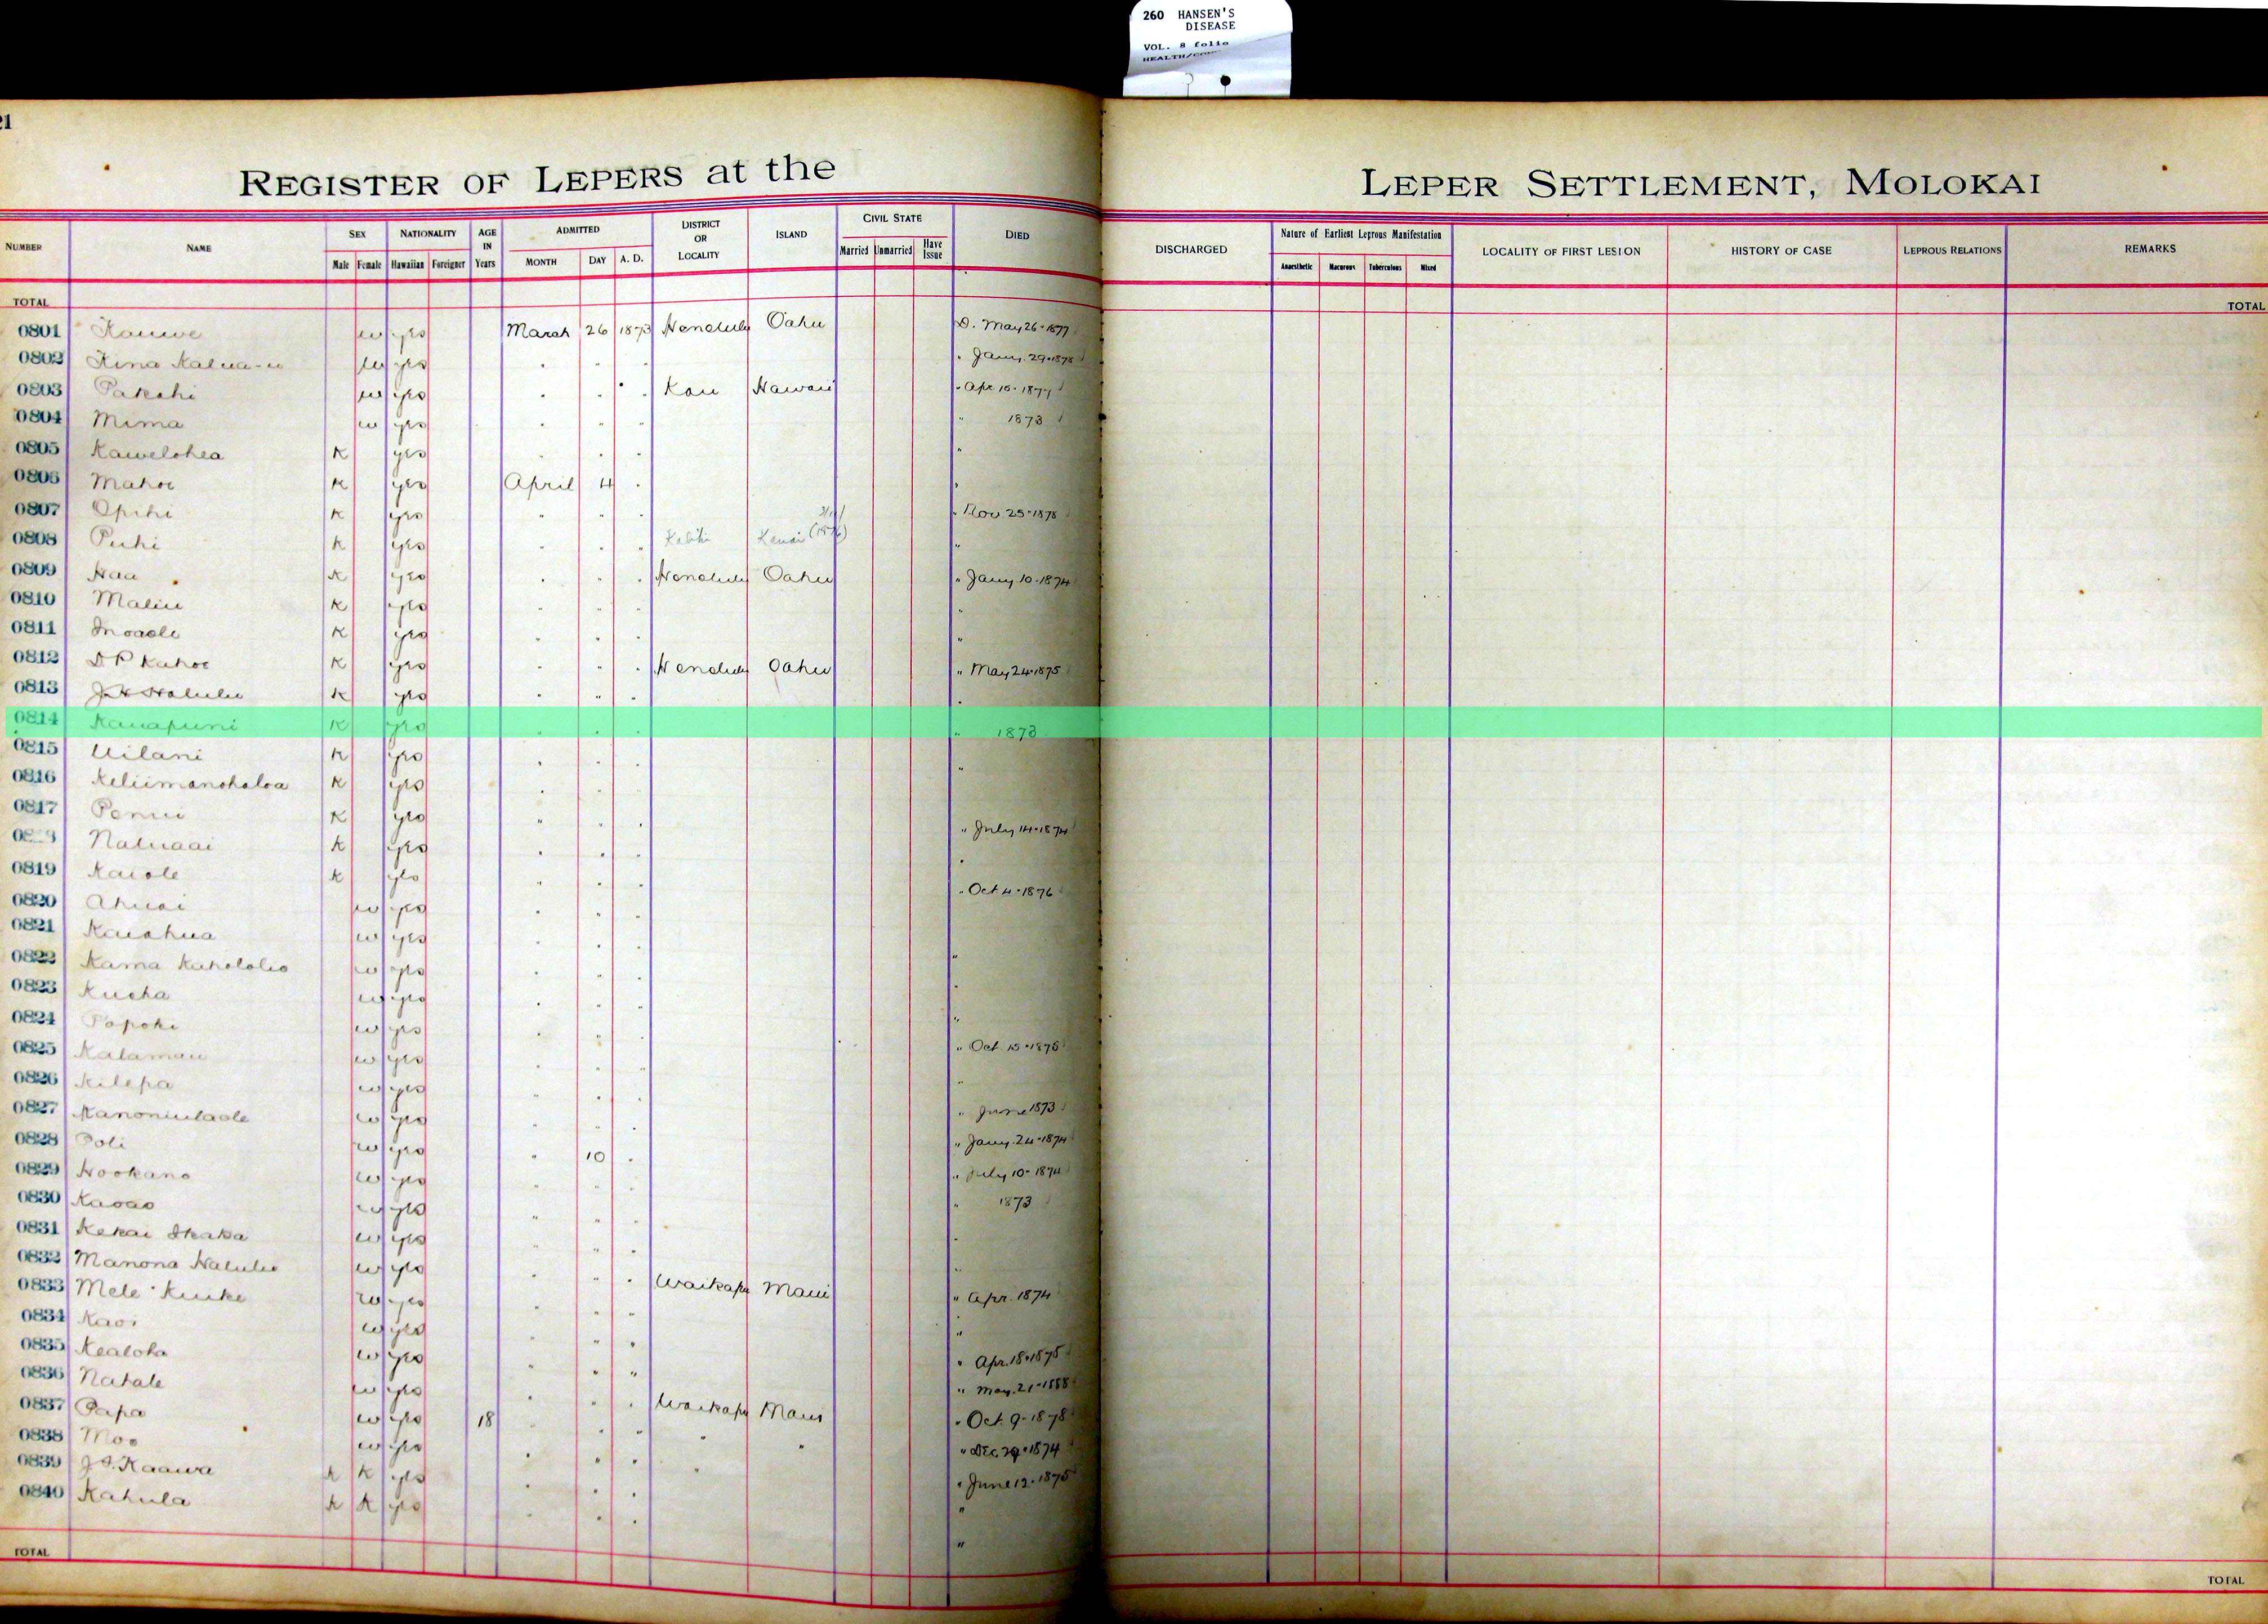 260 HANSEN'S
DISEASE
VOL. 8 folio
21
REGISTER OF LEPERS at the LEPER SETTLEMENT, MOLOKAI
NUMBER NAME SEX Male Female NATIONALITY Hawaiian Foreigner AGE IN Years ADMITTED MONTH DAY A. D. DISTRICT OR LOCALITY ISLAND CIVIL STATE Married Unmarried Have Issue DIED DISCHARGED Nature of Earliest Leprous Manifestation Anaesthetic Macurous Tuberculous Mixed LOCALITY OF FIRST LESION HISTORY OF CASE LEPROUS RELATIONS REMARKS
TOTAL TOTAL
0801 Kauwe w yes March 26 1873 Honolulu Oahu D. May 26-1877
0802 Kina Kalua-u w yes " " " " Jany. 29-1878
0803 Pakahi w yes " " " Kau Hawaii " Apr 10-1877
0804 Mima w yes " " " " 1873
0805 Kawelohea K yes " " " "
0806 Mahoe K yes April 4 " "
0807 Opihi K yes " " " " Nov 25-1878
0808 Puhi K yes " " " Kauai "
0809 Haa K yes " " " Honolulu Oahu " Jany 10-1874
0810 Maliu K yes " " " "
0811 Inoaole K yes " " " "
0812 D P Kahoe K yes " " " Honolulu Oahu " May 24-1875
0813 J H Halulu K yes " " " "
0814 Kauapuni K yes " " " " 1873
0815 Uilani K yes " " " "
0816 Keliimanohaloa K yes " " "
0817 Penui K yes " " " " July 14-1874
Naluaai K yes " " " "
0819 Kaiole K yes " " " " Oct 4-1876
0820 Ahuai w yes " " "
0821 Kaiahua w yes " " " "
0822 Kama Kahololio w yes " " " "
0823 Kueha w yes " " " "
0824 Popoki w yes " " " " Oct. 15-1875
0825 Kalamau w yes " " " "
0826 Kilepa w yes " " " " June 1873
0827 Kanoniulaole w yes " " " " Jany. 24-1874
0828 Poli w yes " 10 " " July 10-1874
0829 Hookano w yes " " " " 1873
0830 Kaoao w yes " " " "
0831 Kekai Ikaka w yes " " " "
0832 Manona Halulu w yes " " " Waikapu Maui " Apr. 1874
0833 Mele Kuike w yes " " " "
0834 Kaoi w yes " " " " Apr. 18-1875
0835 Kealoha w yes " " " " May. 21-1888
0836 Nahale w yes " " " Waikapu Maui " Oct. 9-1878
0837 Papa w yes 18 " " " " " " Dec. 29-1874
0838 Moo w yes " " " " " June 12-1875
0839 J S. Kaawa K K yes " " " "
0840 Kahula K K yes " " " "
TOTAL TOTAL